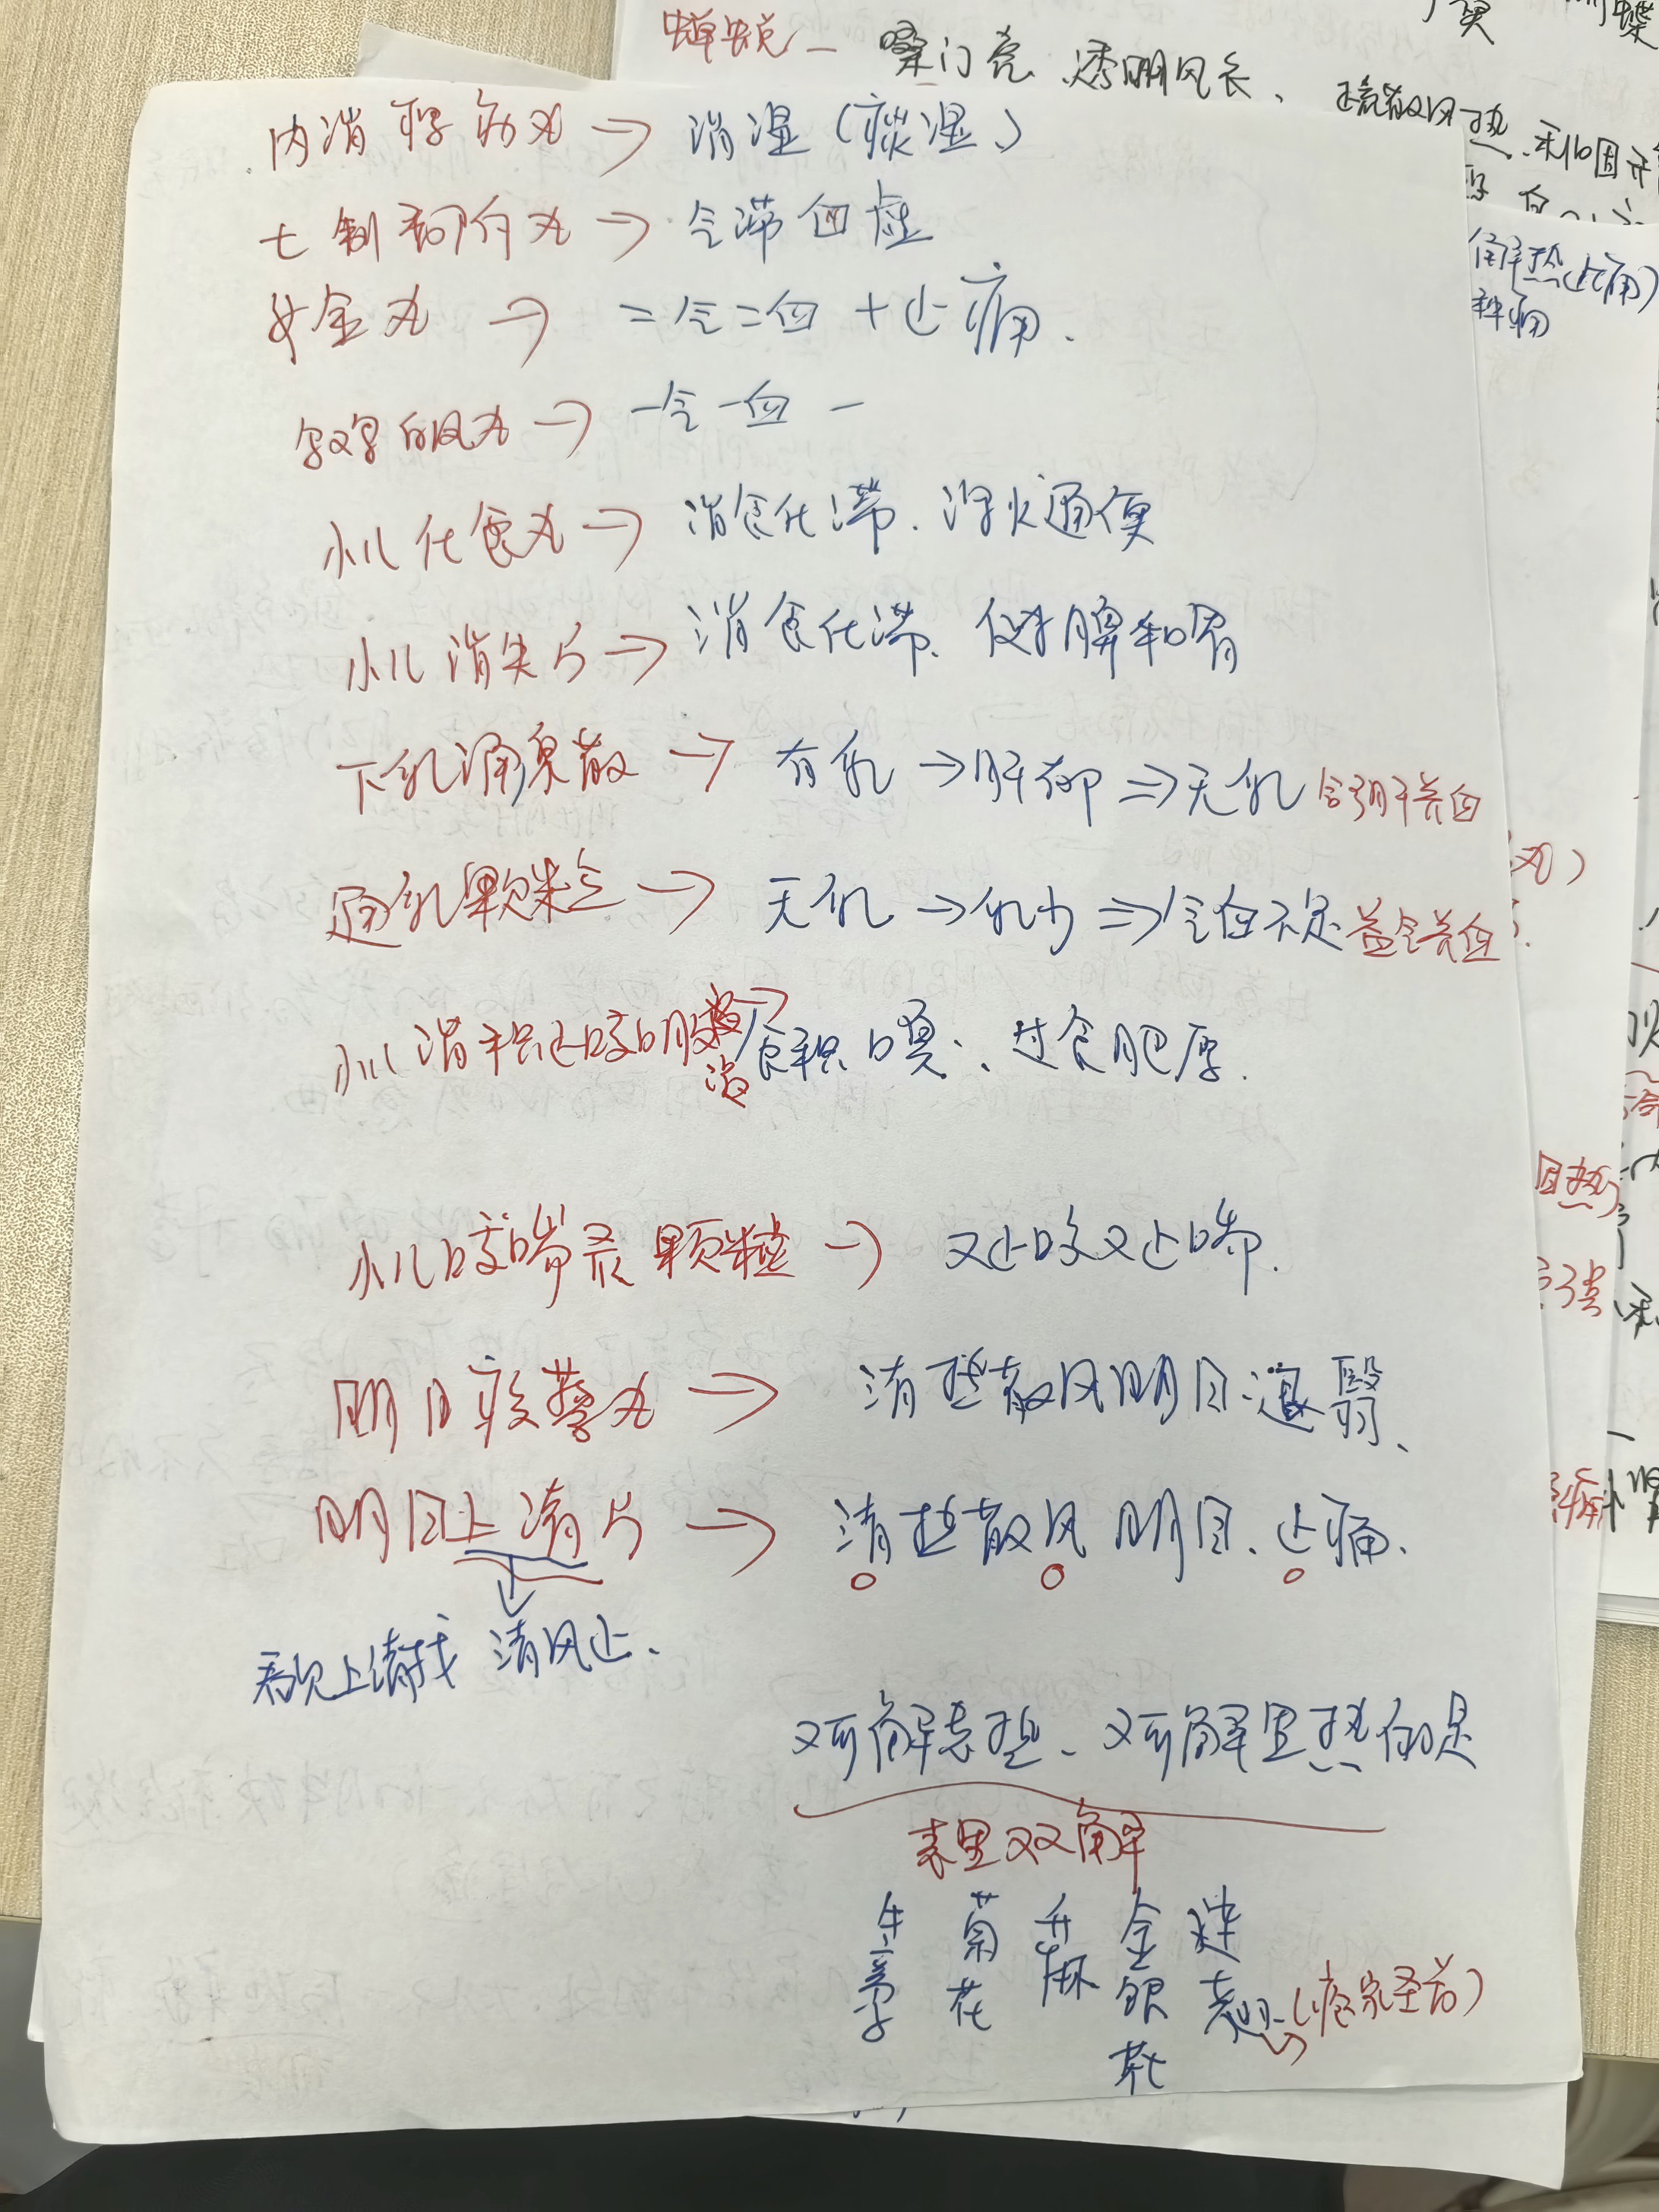 蝉蜕一嗓门亮、透明风衣、疏散风热、利咽开
解热(止痛)
种痛
内消瘰疬丸→消湿(痰湿)
七制香附丸→气滞血虚
女金丸→二气二血+止痛.
白凤丸→一气一血一
小儿化食丸→消食化滞.泻火通便
小儿消失片→消食化滞、健脾和胃
下乳涌泉散→有乳→肝郁⇒无乳 舒肝养血
通乳颗粒→无乳→乳少⇒气血不足 益气养血
小儿消积止咳口服→食积口臭、过食肥厚.
小儿咳喘灵颗粒→又止咳又止喘.
明目蒺藜丸→清热散风明目退翳、
明目上清片→清热散风明目、止痛.
看见上清找 清风止、
又可解表热、又可解里热的是
表里双解
牛蒡子 菊花 升麻 金银花 连翘(疮家圣药)